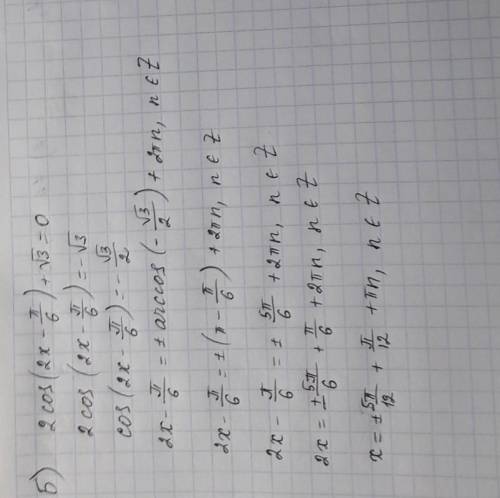 5) 2cos(2x - π/6) + √3 = 0
2cos(2x - π/6) = -√3
cos(2x - π/6) = -√3/2
2x - π/6 = ± arccos(-√3/2) + 2πn, n ∈ Z
2x - π/6 = ±(π - π/6) + 2πn, n ∈ Z
2x - π/6 = ± 5π/6 + 2πn, n ∈ Z
2x = ± 5π/6 + π/6 + 2πn, n ∈ Z
x = ± 5π/12 + π/12 + πn, n ∈ Z